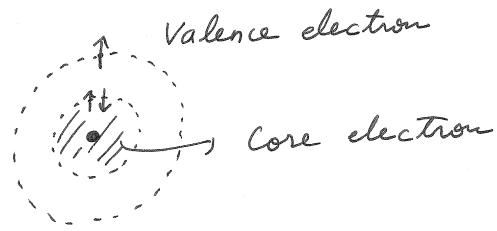 Valence electron
Core electron